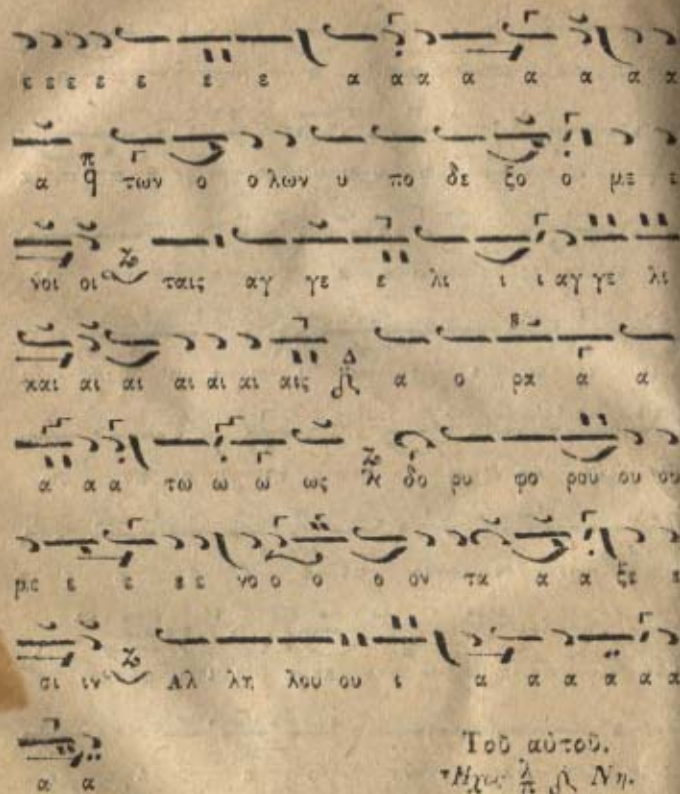 ε ε ε ε ε ε ε α α α α α α α α
α π q των ο ο λων υ πο δε ξο ο με ε
νοι οι ταις αγ γε ε λι ι ι αγ γε λι
και αι αι αι αι αι αις Δ α ο ρα α α
α α α τω ω ω ως δο ρυ φο ρου ου ου
με ε ε ε ε νο ο ο ο ον τα α α ξε ε
σι ιν Αλ λη λου ου ι α α α α α α
α α
Τοῦ αὐτοῦ.
Ἦχος λ π Νη.